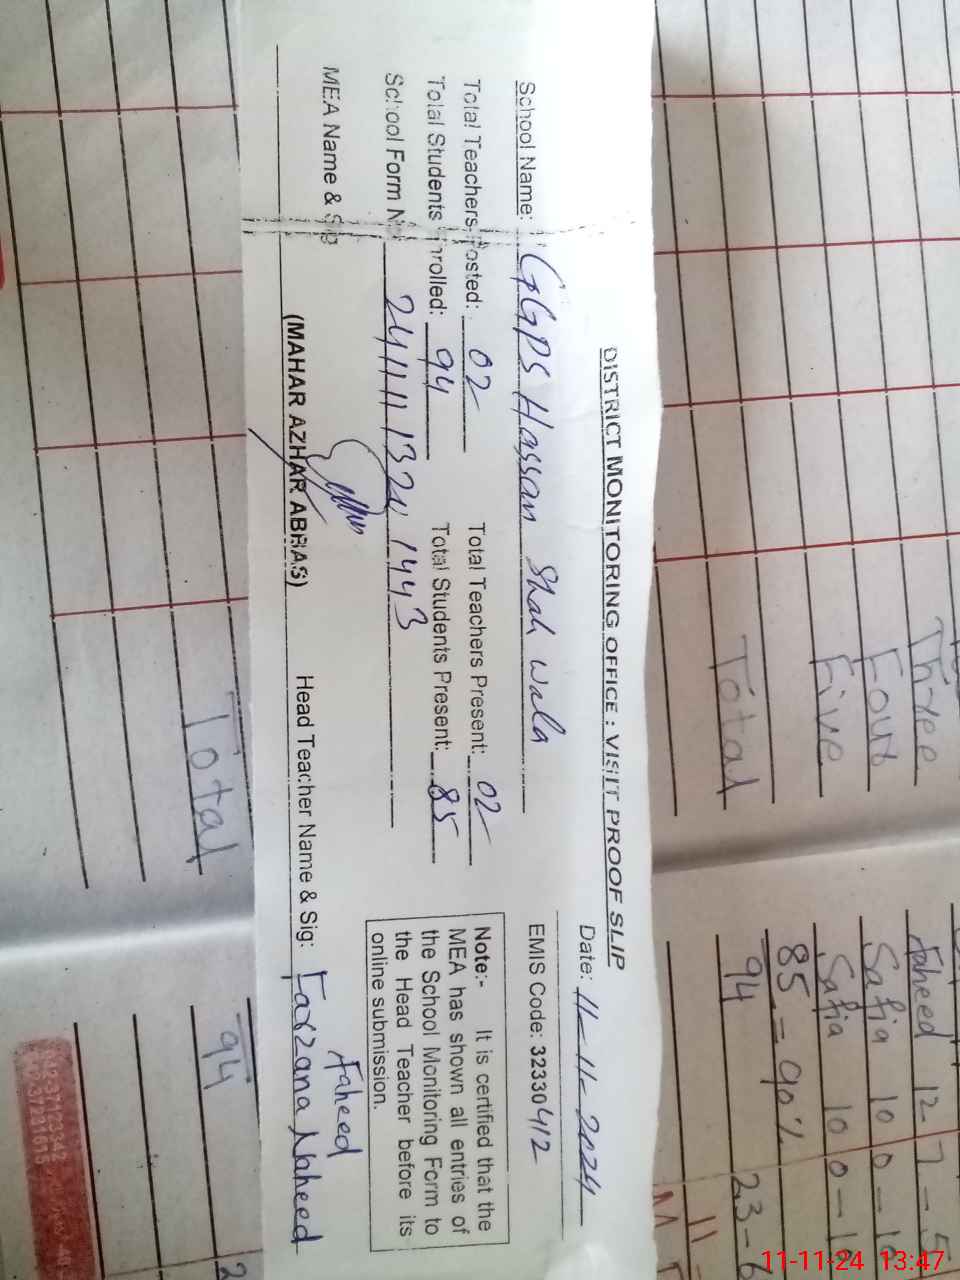 DISTRICT MONITORING OFFICE : VISIT PROOF SLIP
Date: 11-11-2024
School Name: GGPS Hassan Shah Wala
EMIS Code: 32330412
Total Teachers Posted: 02
Total Teachers Present: 02
Total Students Enrolled: 94
Total Students Present: 85
School Form N 241111 1324 1443
Note:- It is certified that the
MEA has shown all entries of
the School Monitoring Form to
the Head Teacher before its
online submission.
MEA Name & Sig
(MAHAR AZHAR ABBAS)
Head Teacher Name & Sig: Farzana Naheed
Naheed
Three Naheed 12 7 - 5
Four Safia 10 0 - 10
Five Safia 10 0 - 10
85 = 90%
Total 94 23-6
Total 94 2
11
11-11-24 13:47